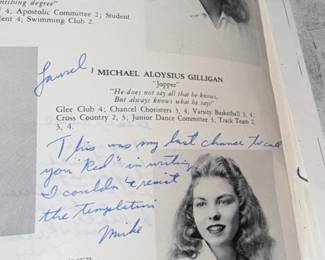 nishing degree"
of 4; Apostolic Committee 2; Student
ent 4; Swimming Club 2.
Laurel,
MICHAEL ALOYSIUS GILLIGAN
"He does not say all that he knows,
But always knows what he says!"
Glee Club 4; Chancel Choristers 3, 4; Varsity Basketball 3, 4;
Cross Country 2, 3; Junior Dance Committee 3; Track Team 2,
3, 4.
This was my last chance to call
you "Red" in writing
I couldn't resist
the temptation
Mike